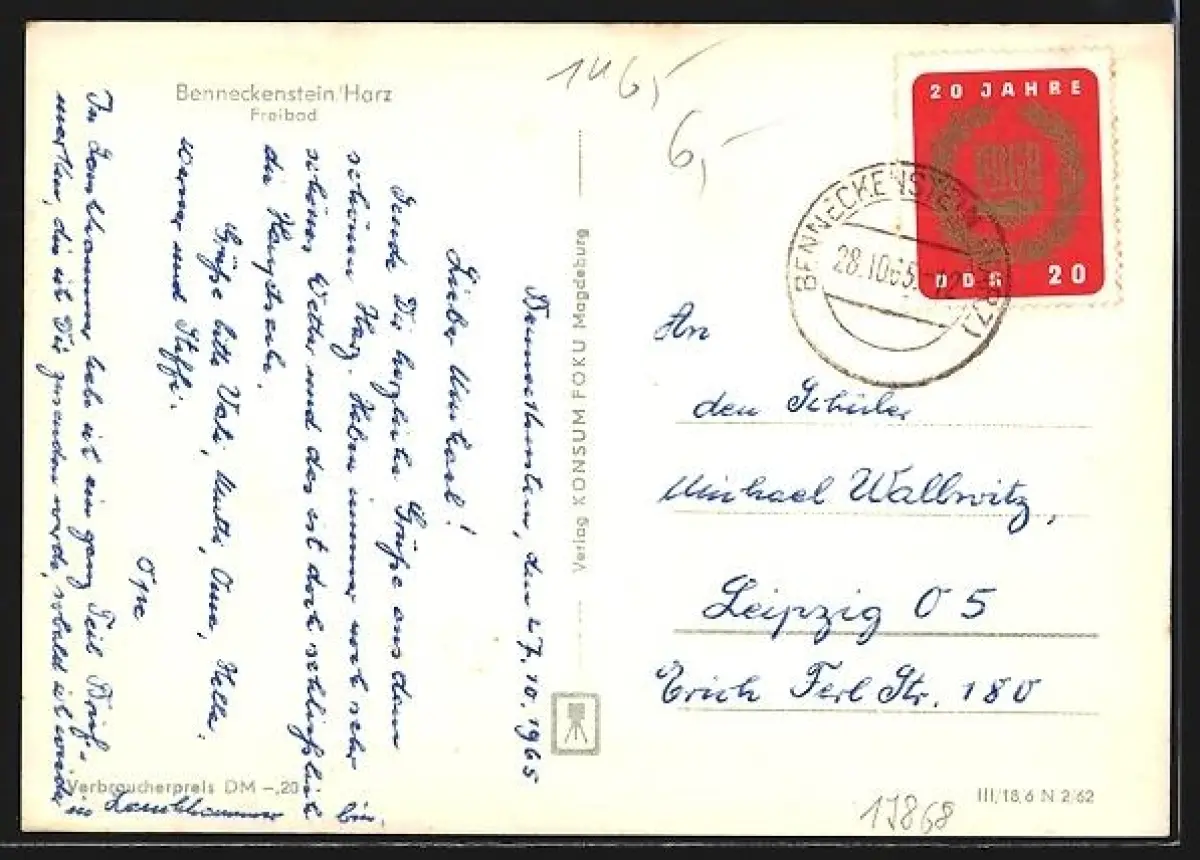 Benneckenstein/Harz
Freibad
Benneckenstein, den 27.10.1965
Lieber Michael!
Sende Dir herzliche Grüße aus dem
schönen Harz. Haben immer noch sehr
schönes Wetter und das ist doch schließlich
die Hauptsache.
Grüße bitte Vati, Mutti, Oma, Hella,
Werner und Steffi.
In Lauchhammer habe ich ein ganz Teil Brief-
marken, die ich Dir zusenden werde, sobald ich wieder
in Lauchhammer bin.
Verbraucherpreis DM -,20
Verlag KONSUM FOKU Magdeburg
6,-
20 JAHRE
DDR 20
BENNECKENSTEIN
28.10.65.-12
An
den Schüler
Michael Wallwitz,
Leipzig O 5
Erich Ferl Str. 180
III/18,6 N 2/62
17868